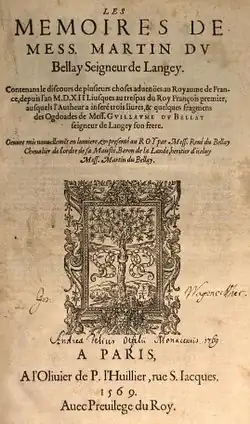 LES
MEMOIRES DE
MESS. MARTIN DV
Bellay Seigneur de Langey.
Contenans le discours de plusieurs choses aduenües au Royaume de Fran-
ce, depuis l'an M.D.XIII iusques au trespas du Roy François premier,
ausquels l'Autheur a inseré trois liures, & quelques fragmens
des Ogdoades de Mess. GVILLAVME DV BELLAY
seigneur de Langey son frere.
Oeuure mis nouuellement en lumiere, & presenté au ROY par Mess. René du Bellay
Cheualier de l'ordre de sa Maiesté, Baron de la Lande, heritier d'iceluy
Mess. Martin du Bellay.
Andrea Felius Oefelii Monacensis 1769
A PARIS,
A l'Oliuier de P. l'Huillier, rue S. Iacques.
1569.
Auec Preuilege du Roy.